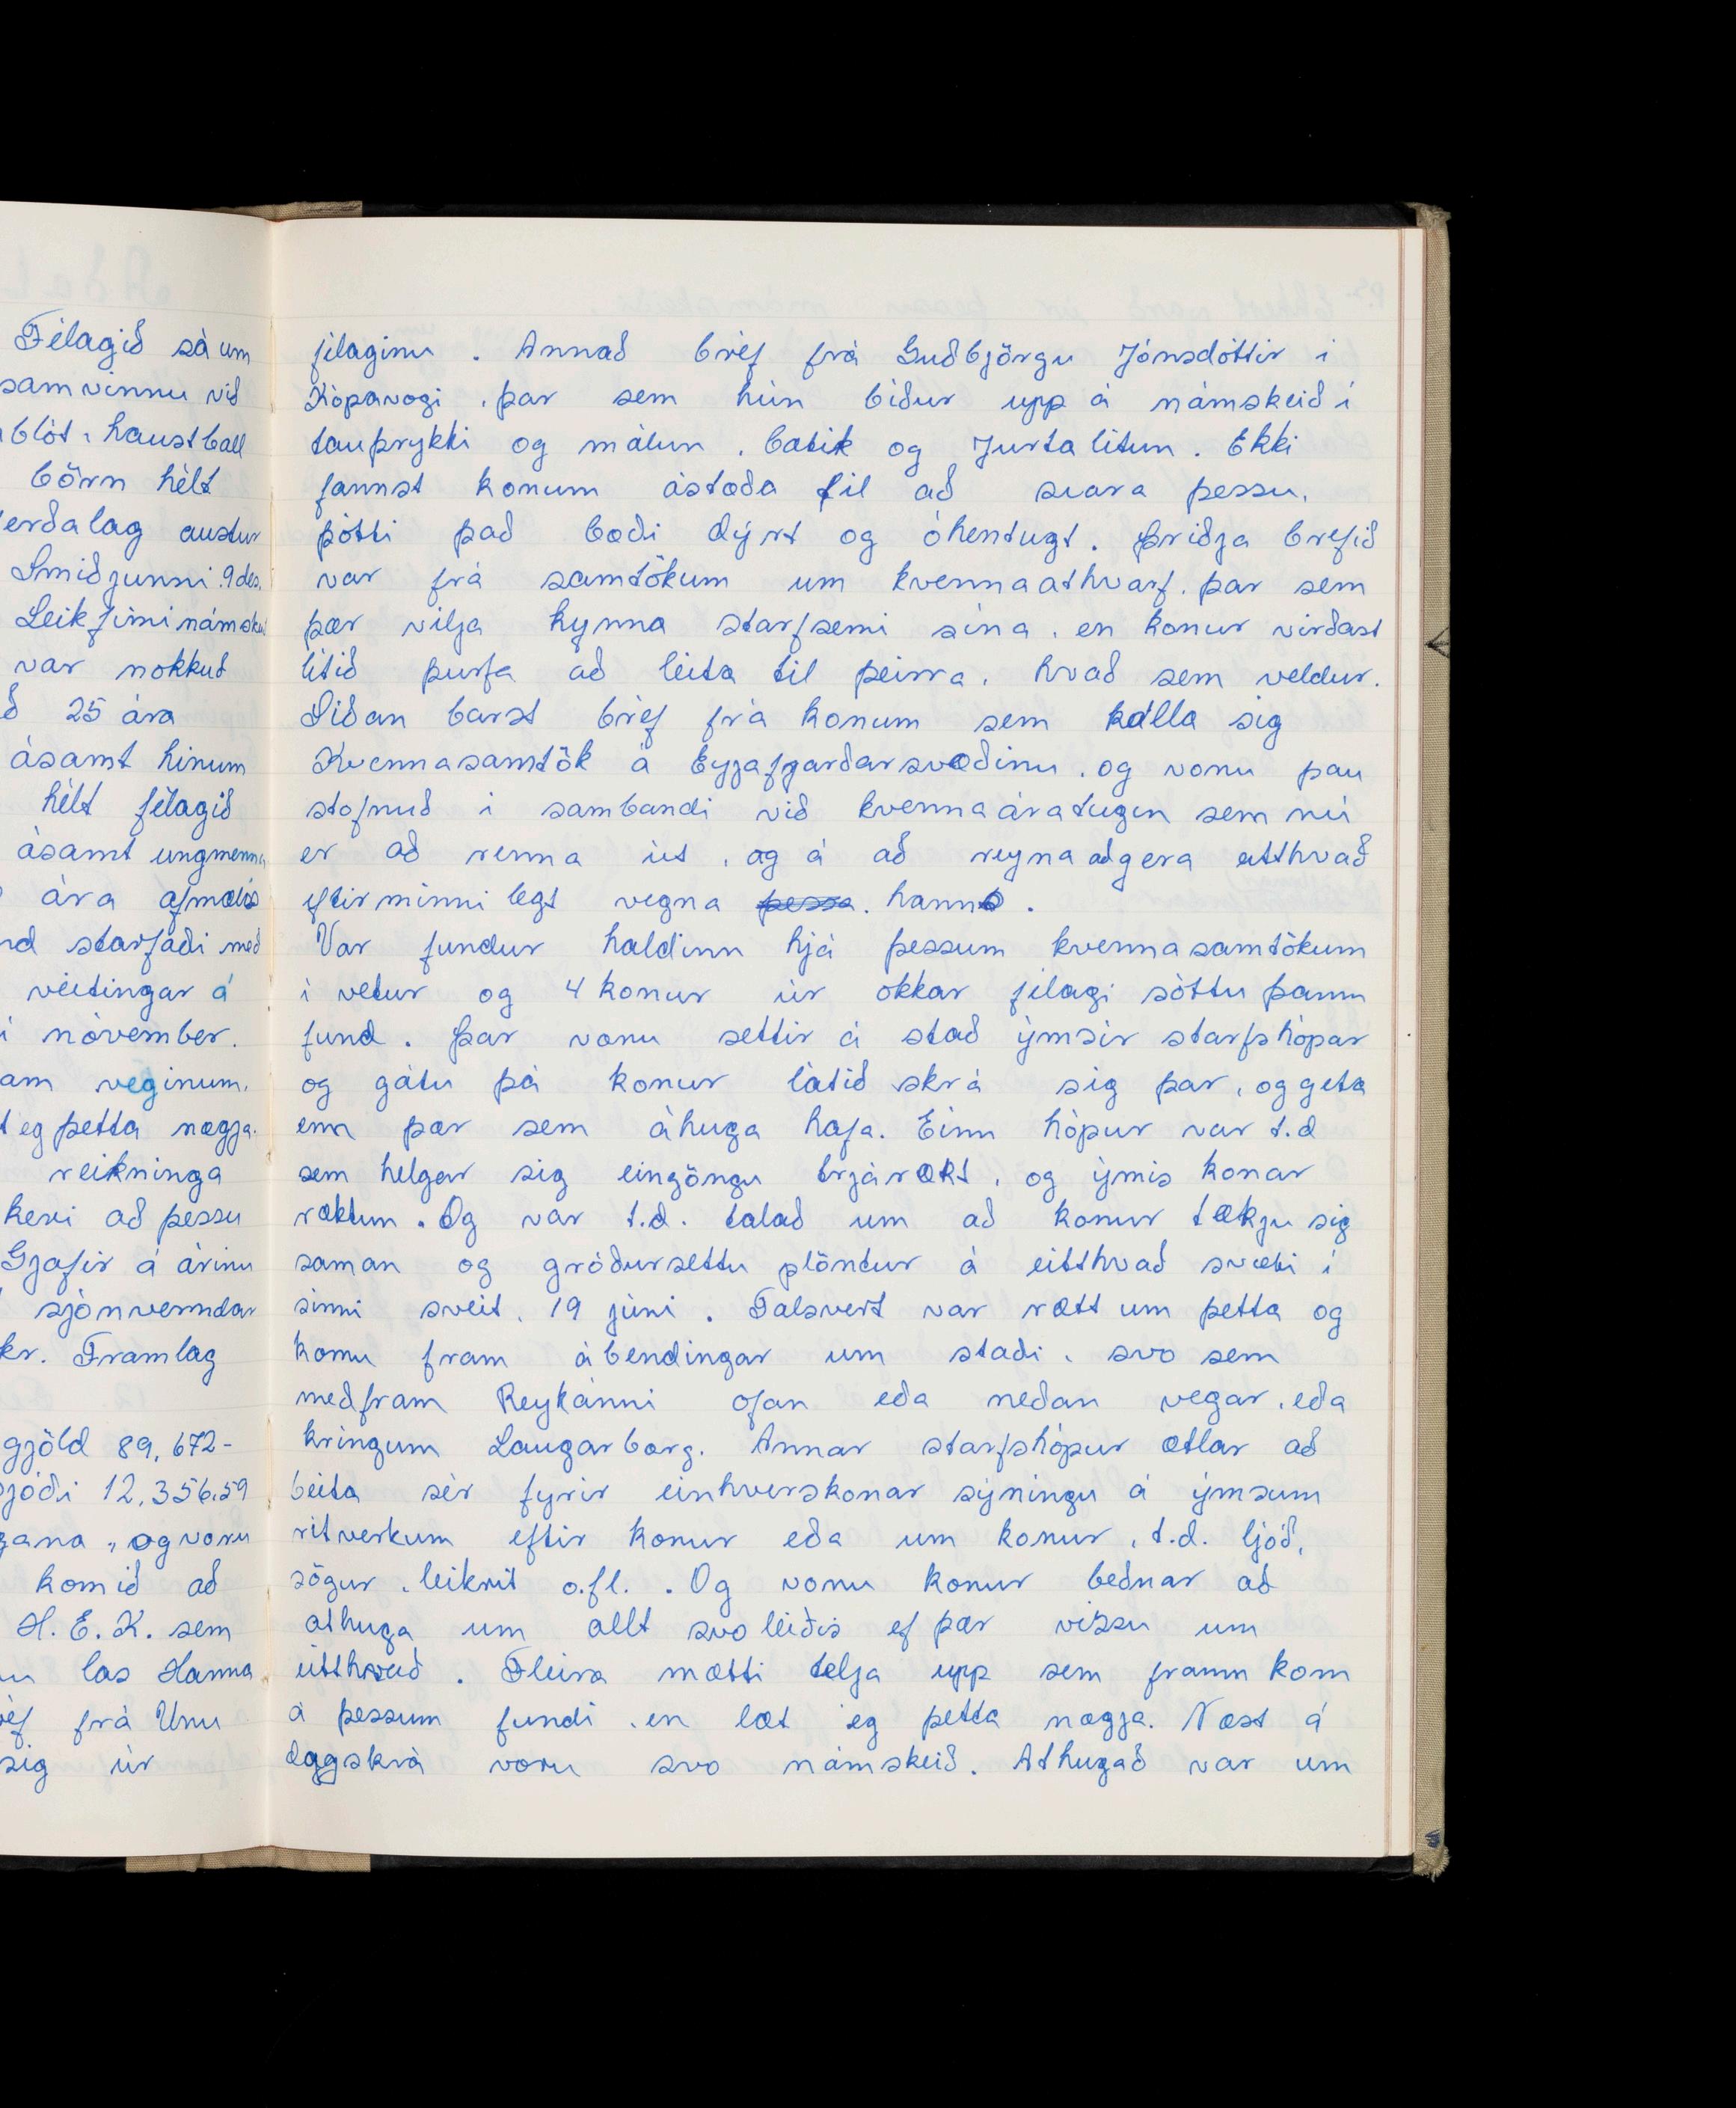 Félagið sá um
samvinnu við
blót, haustball
börn hélt
erðalag austur
Smiðjunni 9 des.
Leikfimi námske
var nokkuð
ð 25 ára
ásamt hinum
hélt félagið
ásamt ungmenna
ára afmælis
nd starfaði með
veitingar á
í nóvember.
am veginum.
t eg þetta nægja.
reikninga
keri að þessu
Gjafir á árinu
sjónvenndar
kr. Framlag
gjöld 89,672-
jóði 12,356,59
gana „ og voru
komið að
H. E. K. sem
las Hanna
éf frá Unu
sig úr
félaginu. Annað bréf frá Guðbjörgu Jónsdóttir í
Kópavogi, þar sem hún bíður upp á námskeið í
tauþrykki og málun, batik og Jurtalitun. Ekki
fannst konum ástæða til að svara þessu,
þótti það bæði dýrt og óhentugt. Þriðja bréfið
var frá samtökum um kvennaathvarf, þar sem
þær vilja kynna starfsemi sína, en konur virðast
lítið þurfa að leita til þeirra, hvað sem veldur.
Síðan barst bréf frá konum sem kalla sig
Kvennasamtök á Eyjafjarðarsvæðinu, og voru þau
stofnuð í sambandi við kvennaáratugin sem nú
er að renna út, og á að reyna að gera eitthvað
eftirminnilegt vegna þessa. hanns.
Var fundur haldinn hjá þessum kvennasamtökum
í vetur og 4 konur úr okkar félagi sóttu þann
fund. Þar voru settir á stað ýmsir starfshópar
og gátu þá konur látið skrá sig þar, og geta
enn þær sem áhuga hafa. Einn hópur var t.d
sem helgar sig eingöngu trjárækt, og ýmis konar
ræktun. Og var t.d. talað um að konur tækju sig
saman og gróðursettu plöntur á eitthvað svæði í
sinni sveit, 19 júní. Talsvert var rætt um þetta og
komu fram ábendingar um staði, svo sem
meðfram Reykánni ofan eða neðan vegar, eða
kringum Laugarborg. Annar starfshópur ætlar að
beita sér fyrir einhverskonar sýningu á ýmsum
ritverkum eftir konur eða um konur, t.d. ljóð,
sögur, leikrit o.fl.. Og voru konur beðnar að
athuga um allt svoleiðis ef þær vissu um
eitthvað. Fleira mætti telja upp sem framm kom
á þessum fundi, en læt eg þetta nægja. Næst á
dagskrá voru svo námskeið. Athugað var um